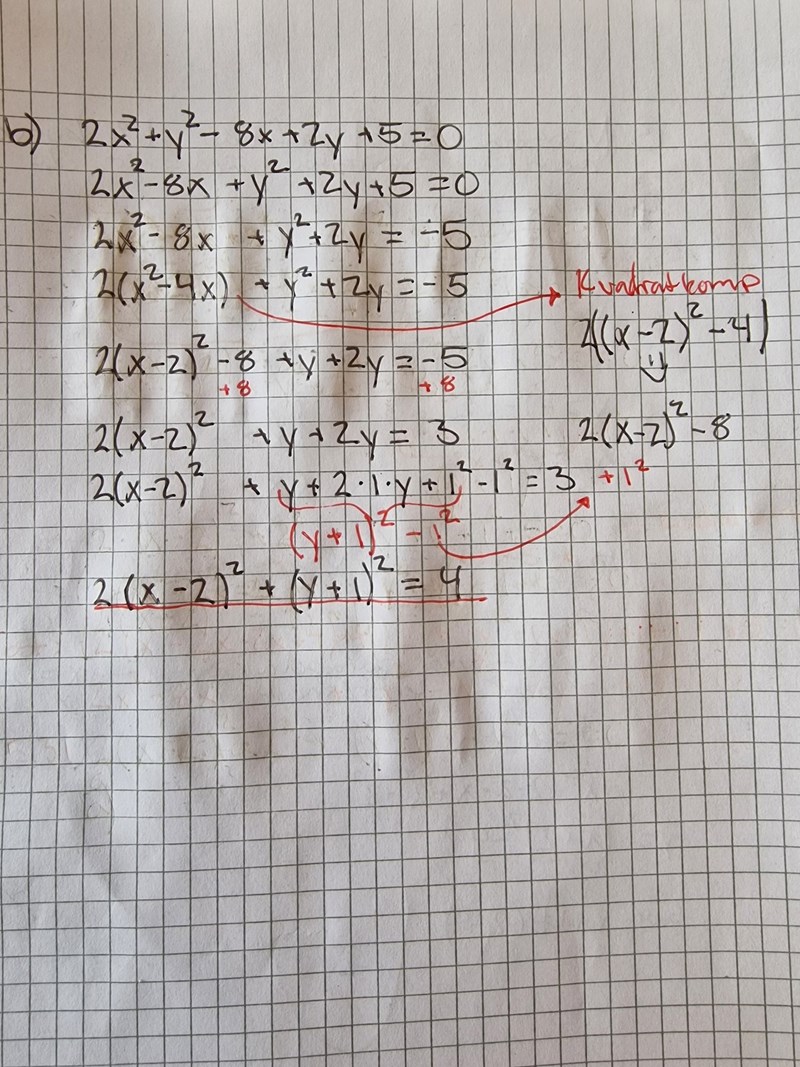 b) 2x² + y² - 8x + 2y + 5 = 0
2x² - 8x + y² + 2y + 5 = 0
2x² - 8x + y² + 2y = -5
2(x² - 4x) + y² + 2y = -5
Kvadratkomp
2((x-2)² - 4)
2(x-2)² - 8 + y + 2y = -5
+8 +8
2(x-2)² + y + 2y = 3
2(x-2)² - 8
2(x-2)² + y + 2·1·y + 1² - 1² = 3 + 1²
(y+1)² - 1²
2(x-2)² + (y+1)² = 4